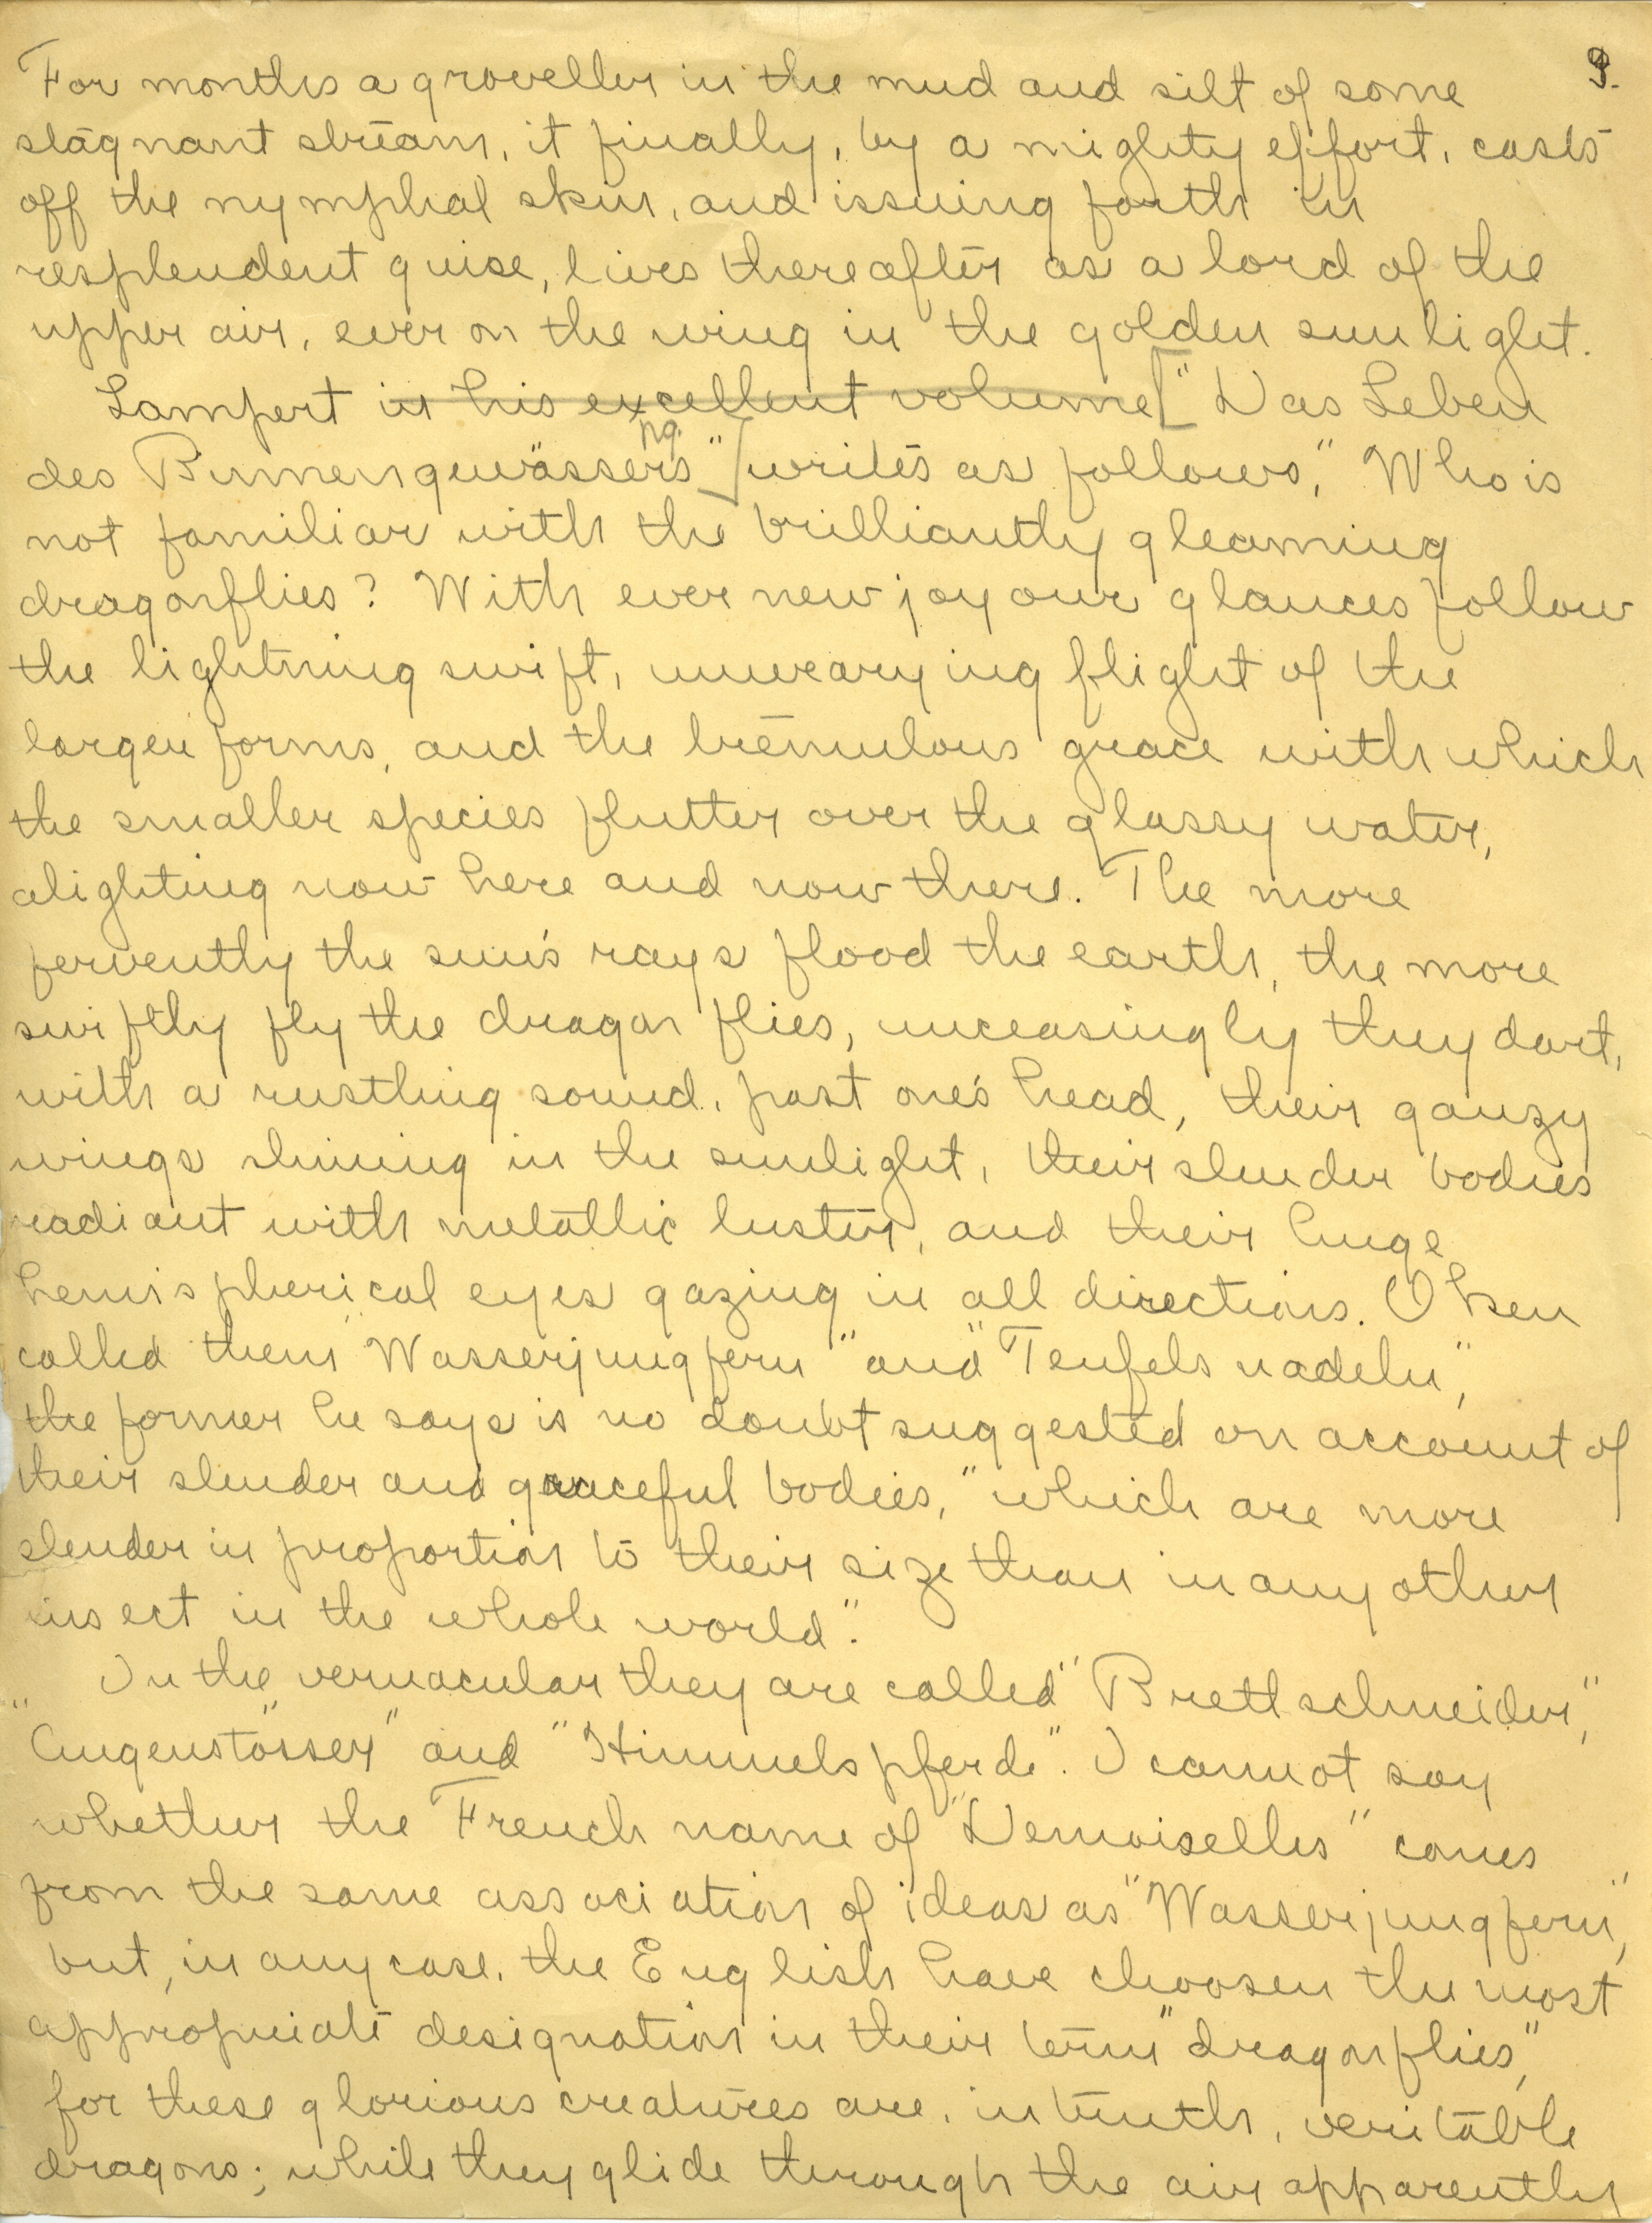 9.
For months a groveller in the mud and silt of some
stagnant stream, it finally, by a mighty effort, casts
off the nymphal skin, and issuing forth in
resplendent guise, lives thereafter as a lord of the
upper air, ever on the wing in the golden sunlight.
Lampert in his excellent volume ["Das Leben
des Binnengewässers" [writes as follows, "Who is
not familiar with the brilliantly gleaming
dragonflies? With ever new joy our glances follow
the lightning swift, unwearying flight of the
larger forms, and the tremulous grace with which
the smaller species flutter over the glassy water,
alighting now here and now there. The more
fervently the sun's rays flood the earth, the more
swiftly fly the dragon flies, unceasingly they dart,
with a rustling sound, past one's head, their gauzy
wings shining in the sunlight, their slender bodies
radiant with metallic luster, and their huge
hemispherical eyes gazing in all directions. Oken
called them "Wasserjungfern" and "Teufelsnadeln",
the former he says is no doubt suggested on account of
their slender and graceful bodies, "which are more
slender in proportion to their size than in any other
insect in the whole world".
In the vernacular they are called "Brettschneider",
"Augenstösser" and "Himmelspferde". I cannot say
whether the French name of "Demoiselles" comes
from the same association of ideas as "Wasserjungfern",
but, in any case, the English have choosen the most
appropriate designation in their term "dragonflies",
for these glorious creatures are, in truth, veritable
dragons; while they glide through the air apparently